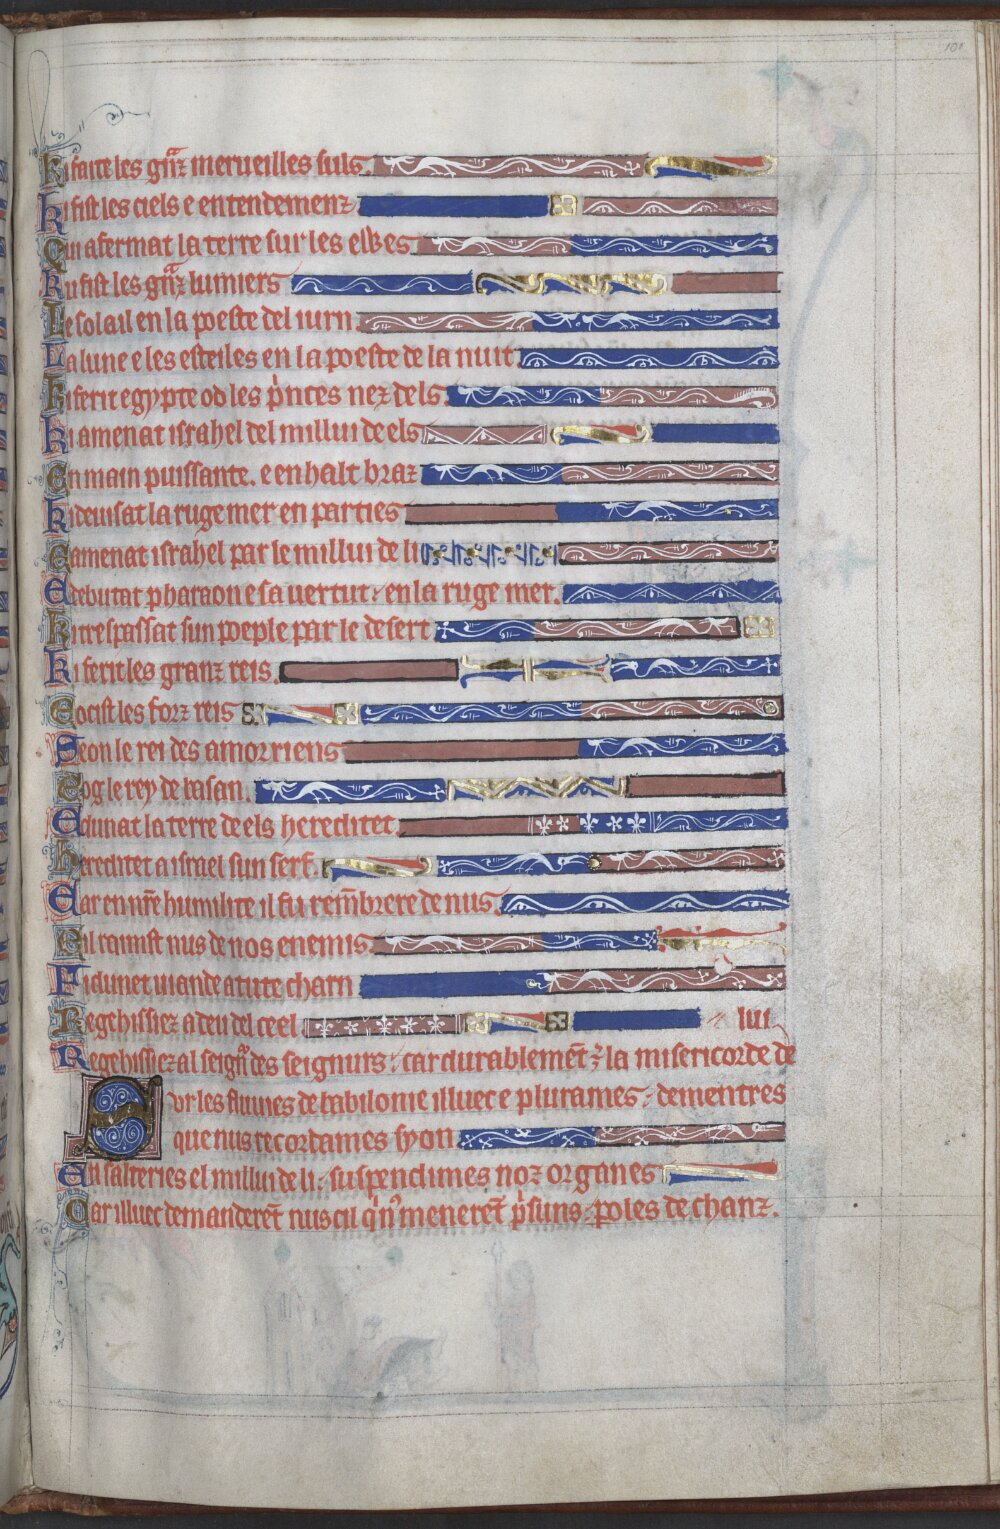 101
Ki faite les gñz merueilles suls.
Ki fist les ciels e entendemenz
Qui afermat la terre sur les elbes
Ku fist les gñz lumiers
Le solail en la poeste del iurn
La lune e les esteiles en la poeste de la nuit.
Ki ferit egypte od les p'nces nez dels.
Ki amenat israhel del millui de els
En main puissante. e en halt braz
Ki deuisat la ruge mer en parties
E amenat israhel par le millui de li
E debutat pharaon e sa uertut : en la ruge mer.
Ki trespassat sun poeple par le desert
Ki ferit les granz reis.
E ocist les forz reis
Seon le rei des amorriens
E og le rey de basan.
E dunat la terre de els hereditet.
Hereditet a israel sun serf.
Car en nr̄e humilite il fu rem̄brere de nus.
E il raimst nus de nos enemis.
Ki dunet uiande a tute charn
Regehissiez a deu del ceel
lui.
Regehissiez al seign̄ des seignurs : car durablemēt : la misericorde de
Sur les fluuies de babilonie illuec e plurames : dementres
que nus recordames syon.
En salteries el millui de li : suspendimes noz organes
Car illuec demanderēt nus cil q'n9 menerēt p'suns : poles de chanz.